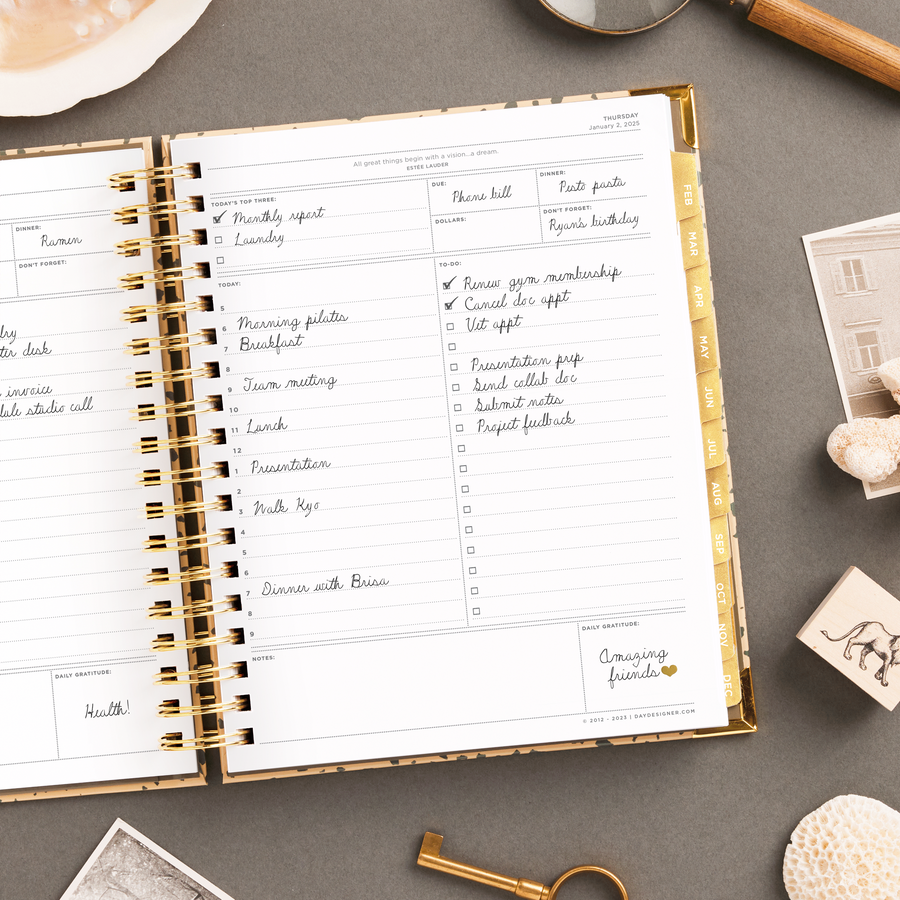 DINNER:
Ramen
DON'T FORGET:
dry
ter desk
invoice
dule studio call
DAILY GRATITUDE:
Health!
THURSDAY
January 2, 2025
All great things begin with a vision...a dream.
ESTÉE LAUDER
TODAY'S TOP THREE:
Monthly report
Laundry
DUE:
Phone bill
DOLLARS:
DINNER:
Pesto pasta
DON'T FORGET:
Ryan's birthday
TODAY:
5
6 Morning pilates
7 Breakfast
8
9 Team meeting
10
11 Lunch
12
1 Presentation
2
3 Walk Kyo
4
5
6
7 Dinner with Brisa
8
9
TO-DO:
Renew gym membership
Cancel doc appt
Vet appt
Presentation prep
Send collab doc
Submit notes
Project feedback
NOTES:
DAILY GRATITUDE:
Amazing
friends
© 2012 - 2023 | DAYDESIGNER.COM
FEB
MAR
APR
MAY
JUN
JUL
AUG
SEP
OCT
NOV
DEC